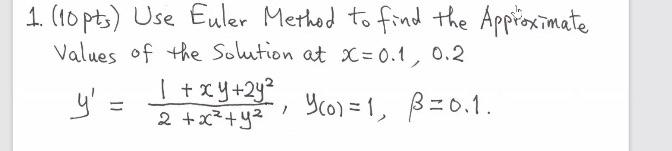 1. (10 pts) Use Euler Method to find the Approximate
Values of the Solution at x = 0.1, 0.2
y' = (1 + xy + 2y²) / (2 + x² + y²), y(0) = 1, β = 0.1.